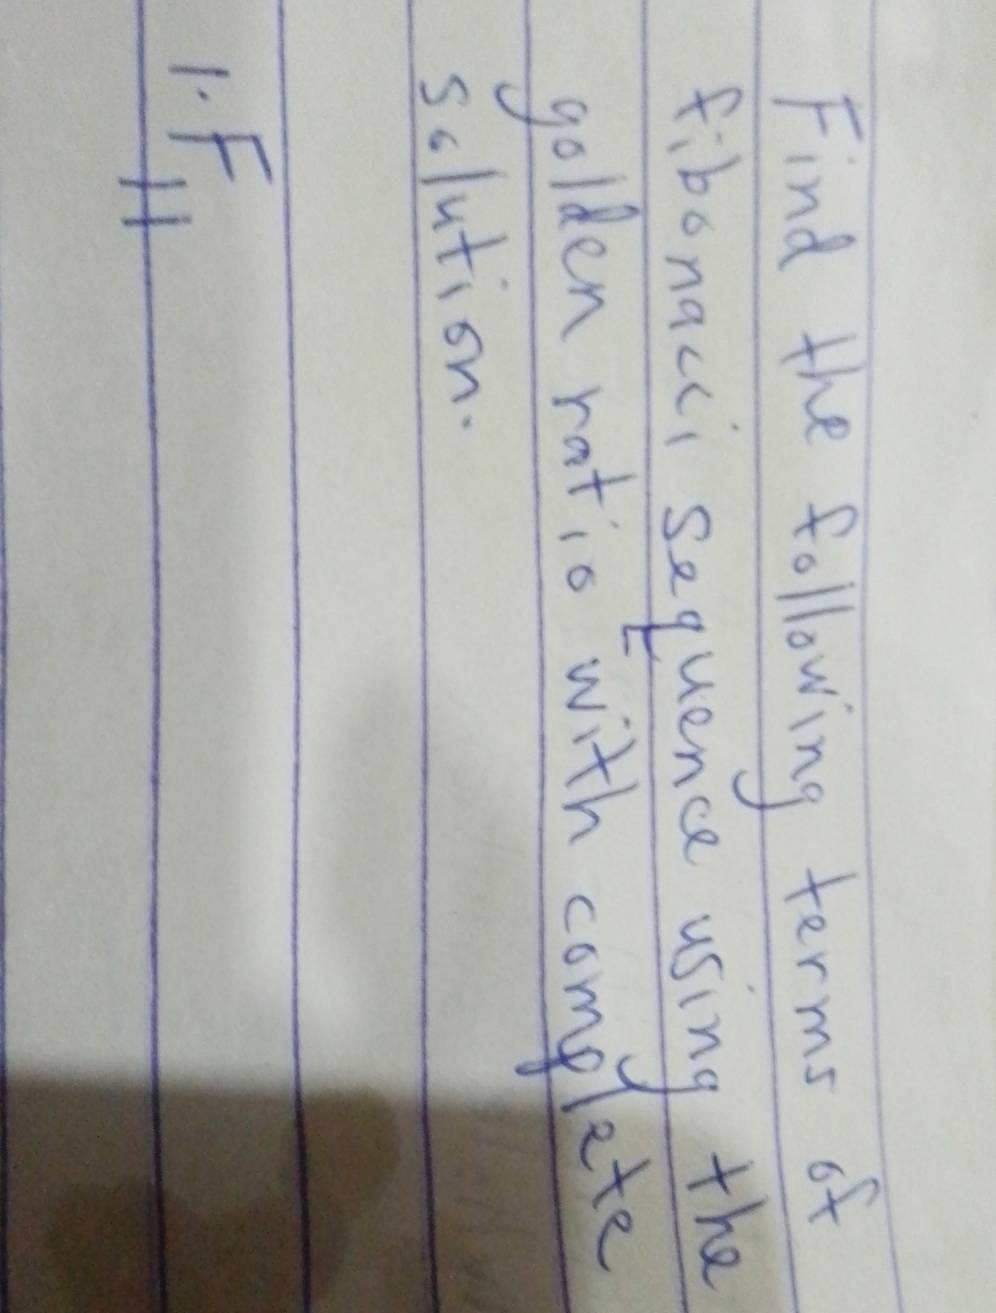 Find the following terms of
fibonacci sequence using the
golden ratio with complete
solution.
1. F11